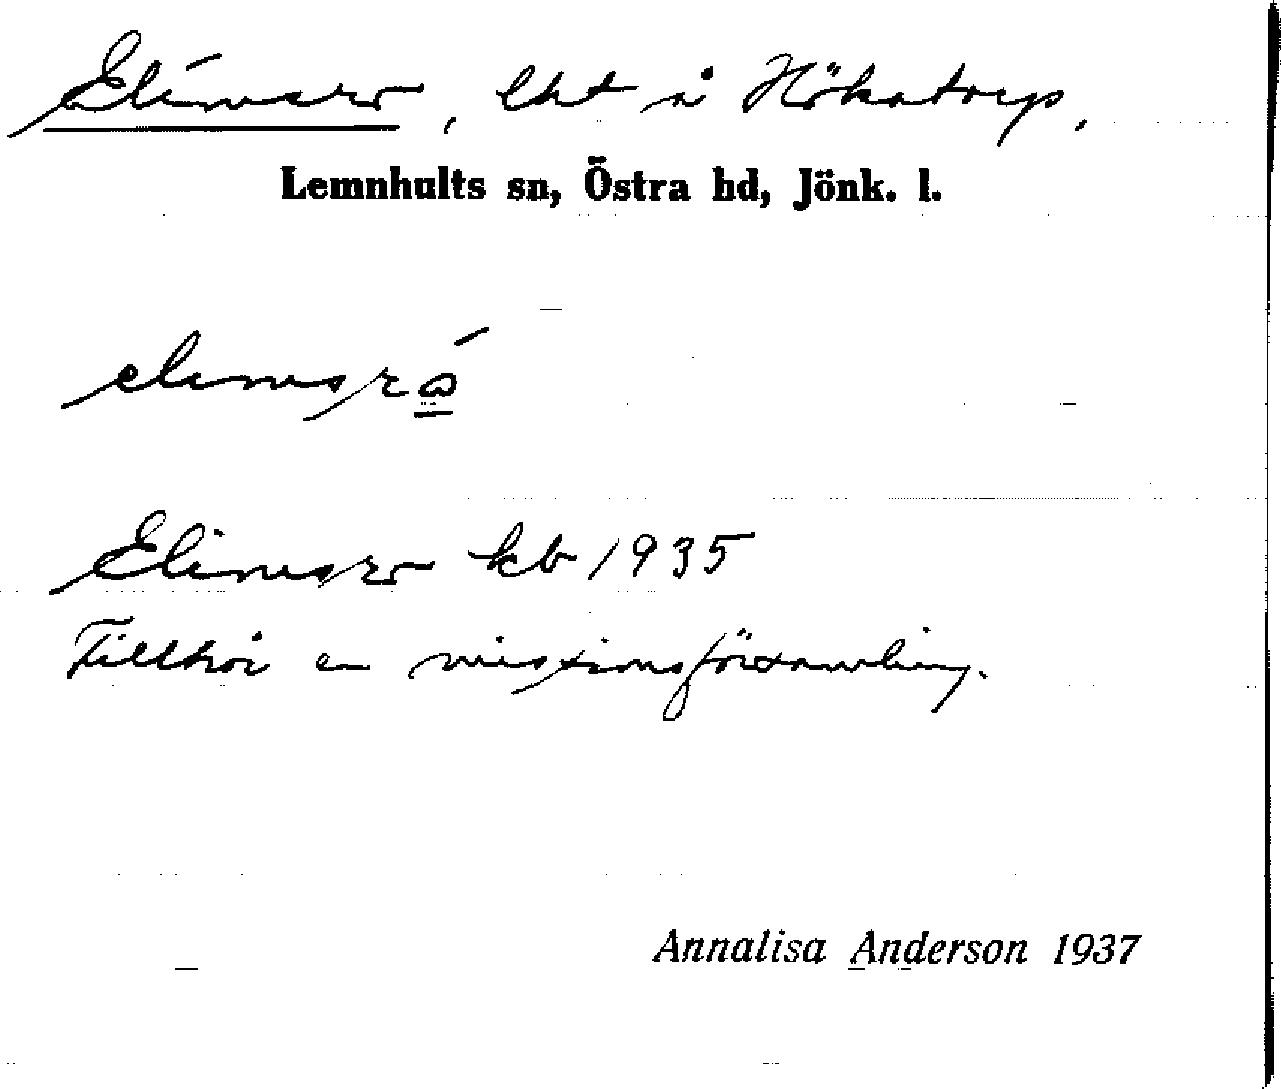 Elimsro, lht å Hökatorp,
Lemnhults sn, Östra hd, Jönk. l.
elimsró
Elimsro kb 1935
Tillhör en missionsförsamling.
Annalisa Anderson 1937